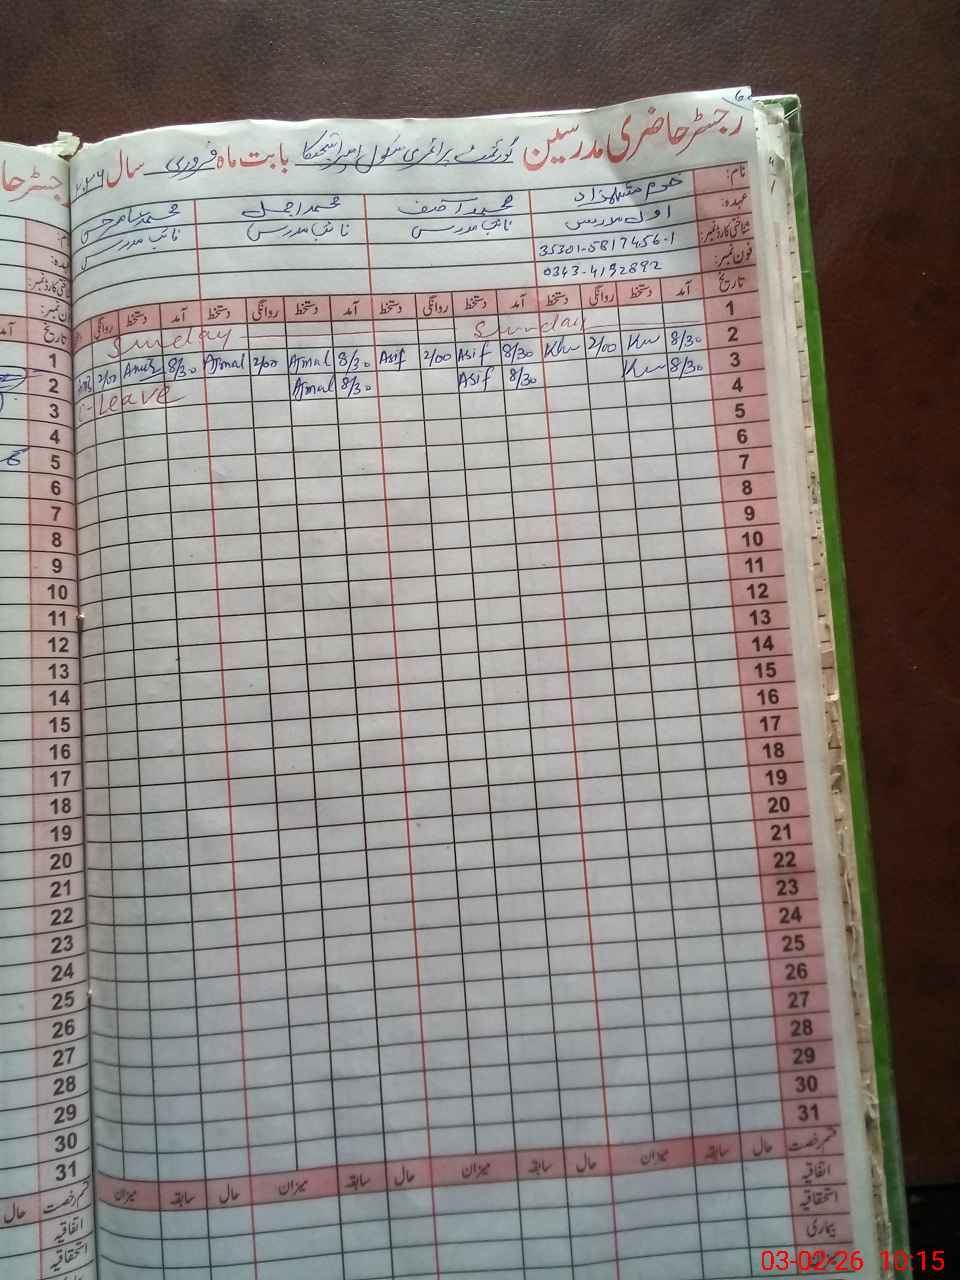 رجسٹر حاضری مدرسین گورنمنٹ پرائمری سکول بابت ماہ فروری سال ۲۰۲۶
نام:
محمد آصف محمد اجمل
عہدہ: اول مدرس نائب مدرس نائب مدرس نائب مدرس
شناختی کارڈ نمبر: 35301-5817456-1
فون نمبر: 0343-4192892
تاریخ آمد دستخط روانگی دستخط آمد دستخط روانگی دستخط آمد دستخط روانگی دستخط آمد دستخط روانگی
1 Sunday Sunday
2 8/30 2/00 8/30 Asif 2/00 Asif 8/30 Ajmal 2/00 Ajmal 8/30 2/00
3 8/30 8/30 Asif 8/30 Ajmal C-Leave
4
5
6
7
8
9
10
11
12
13
14
15
16
17
18
19
20
21
22
23
24
25
26
27
28
29
30
31
قسم رخصت حال سابقہ میزان حال سابقہ میزان حال سابقہ میزان حال سابقہ میزان
اتفاقیہ
استحقاقیہ
بیماری
میزان
رجسٹر حا
تاریخ آمد
1
2
3
4
5
6
7
8
9
10
11
12
13
14
15
16
17
18
19
20
21
22
23
24
25
26
27
28
29
30
31
قسم رخصت حال
اتفاقیہ
استحقاقیہ
03-02-26 10:15